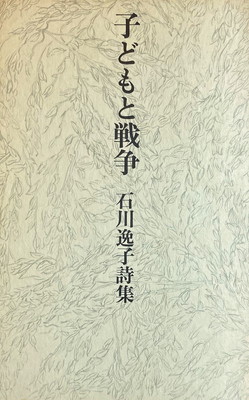 子どもと戦争
石川逸子詩集